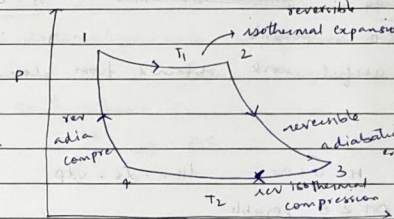 reversible
isothermal expansion
1
T1
2
P
rev
adia
compre
reversible
adiabatic
3
4
T2
rev isothermal
compression